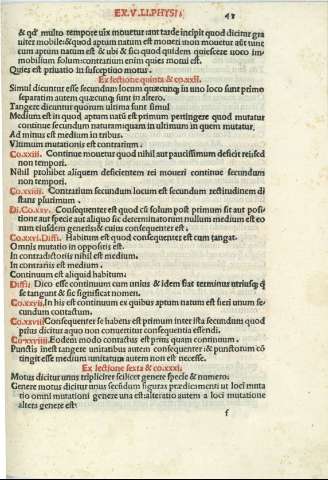 EX.V.LI.PHYSI.
48
& qd' multo tempore uix mouetur aut tarde incipit quod dicitur gra
uiter mobile: & quod aptum natum est moueri non mouetur aūt tunc
cum aptum natum est & ubi & sici quod quidem quiescere uoco im
mobilium solum: contrarium enim quies motui est.
Quies est priuatio in susceptiuo motus.
Ex lectione quinta & co.xxii.
Simul dicuntur esse secundum locum quæcunq; in uno loco sunt primo
separatim autem quæcunq; sunt in altero.
Tangere dicuntur quorum ultima sunt simul
Medium est in quod aptum natū est primum pertingere quod mutatur
continue secundum naturam: quam in ultimum in quem mutatur,
Ad minus est medium in tribus.
Vltimum mutationis est contrarium.
Co.xxiii. Continue mouetur quod nihil aut paucissimum deficit rei sed
non tempori.
Nihil prohibet aliquem deficientem rei moueri continue secundum
non tempori.
Co.xxiiii. Contrarium secundum locum est secundum rectitudinem di
stans plurimum.
Di.Co.xxv. Consequenter est quod cū solum post primum sit aut posi
tione aut specie aut aliquo sic determinatorum nullum medium est eo
rum eiusdem generis: & cuius consequenter est.
Co.xxvi.Diffi. Habitum est quod consequenter est cum tangat.
Omnis mutatio in oppositis est.
In contradictoriis nihil est medium.
In contrariis est medium.
Continuum est aliquid habitum.
Diffi: Dico esse continuum cum unius & idem fiat terminus utriusq; q̄
se tangunt & sic significat nomen.
Co.xxvii. In his est continuum ex quibus aptum natum est fieri unum se
cundum contactum.
Co.xxviii Consequenter se habens est primum inter ista secundum quod
prius dicitur a quo non conuertitur consequentia essendi.
Co.xxviiii. Eodem modo contactus est prius quam continuum.
Punctis inest tangere unitatibus autem consequenter: & punctorum cō
tingit esse medium unitatum autem non est necesse.
Ex lectione sexta & co.xxxi,
Motus dicitur unus tripliciter scilicet genere specie & numero.
Genere motus dicitur unus secūdum figuras prædicamenti ut loci muta
tio omni mutationi genere una est: alteratio autem a loci mutatione
altera genere est.
f